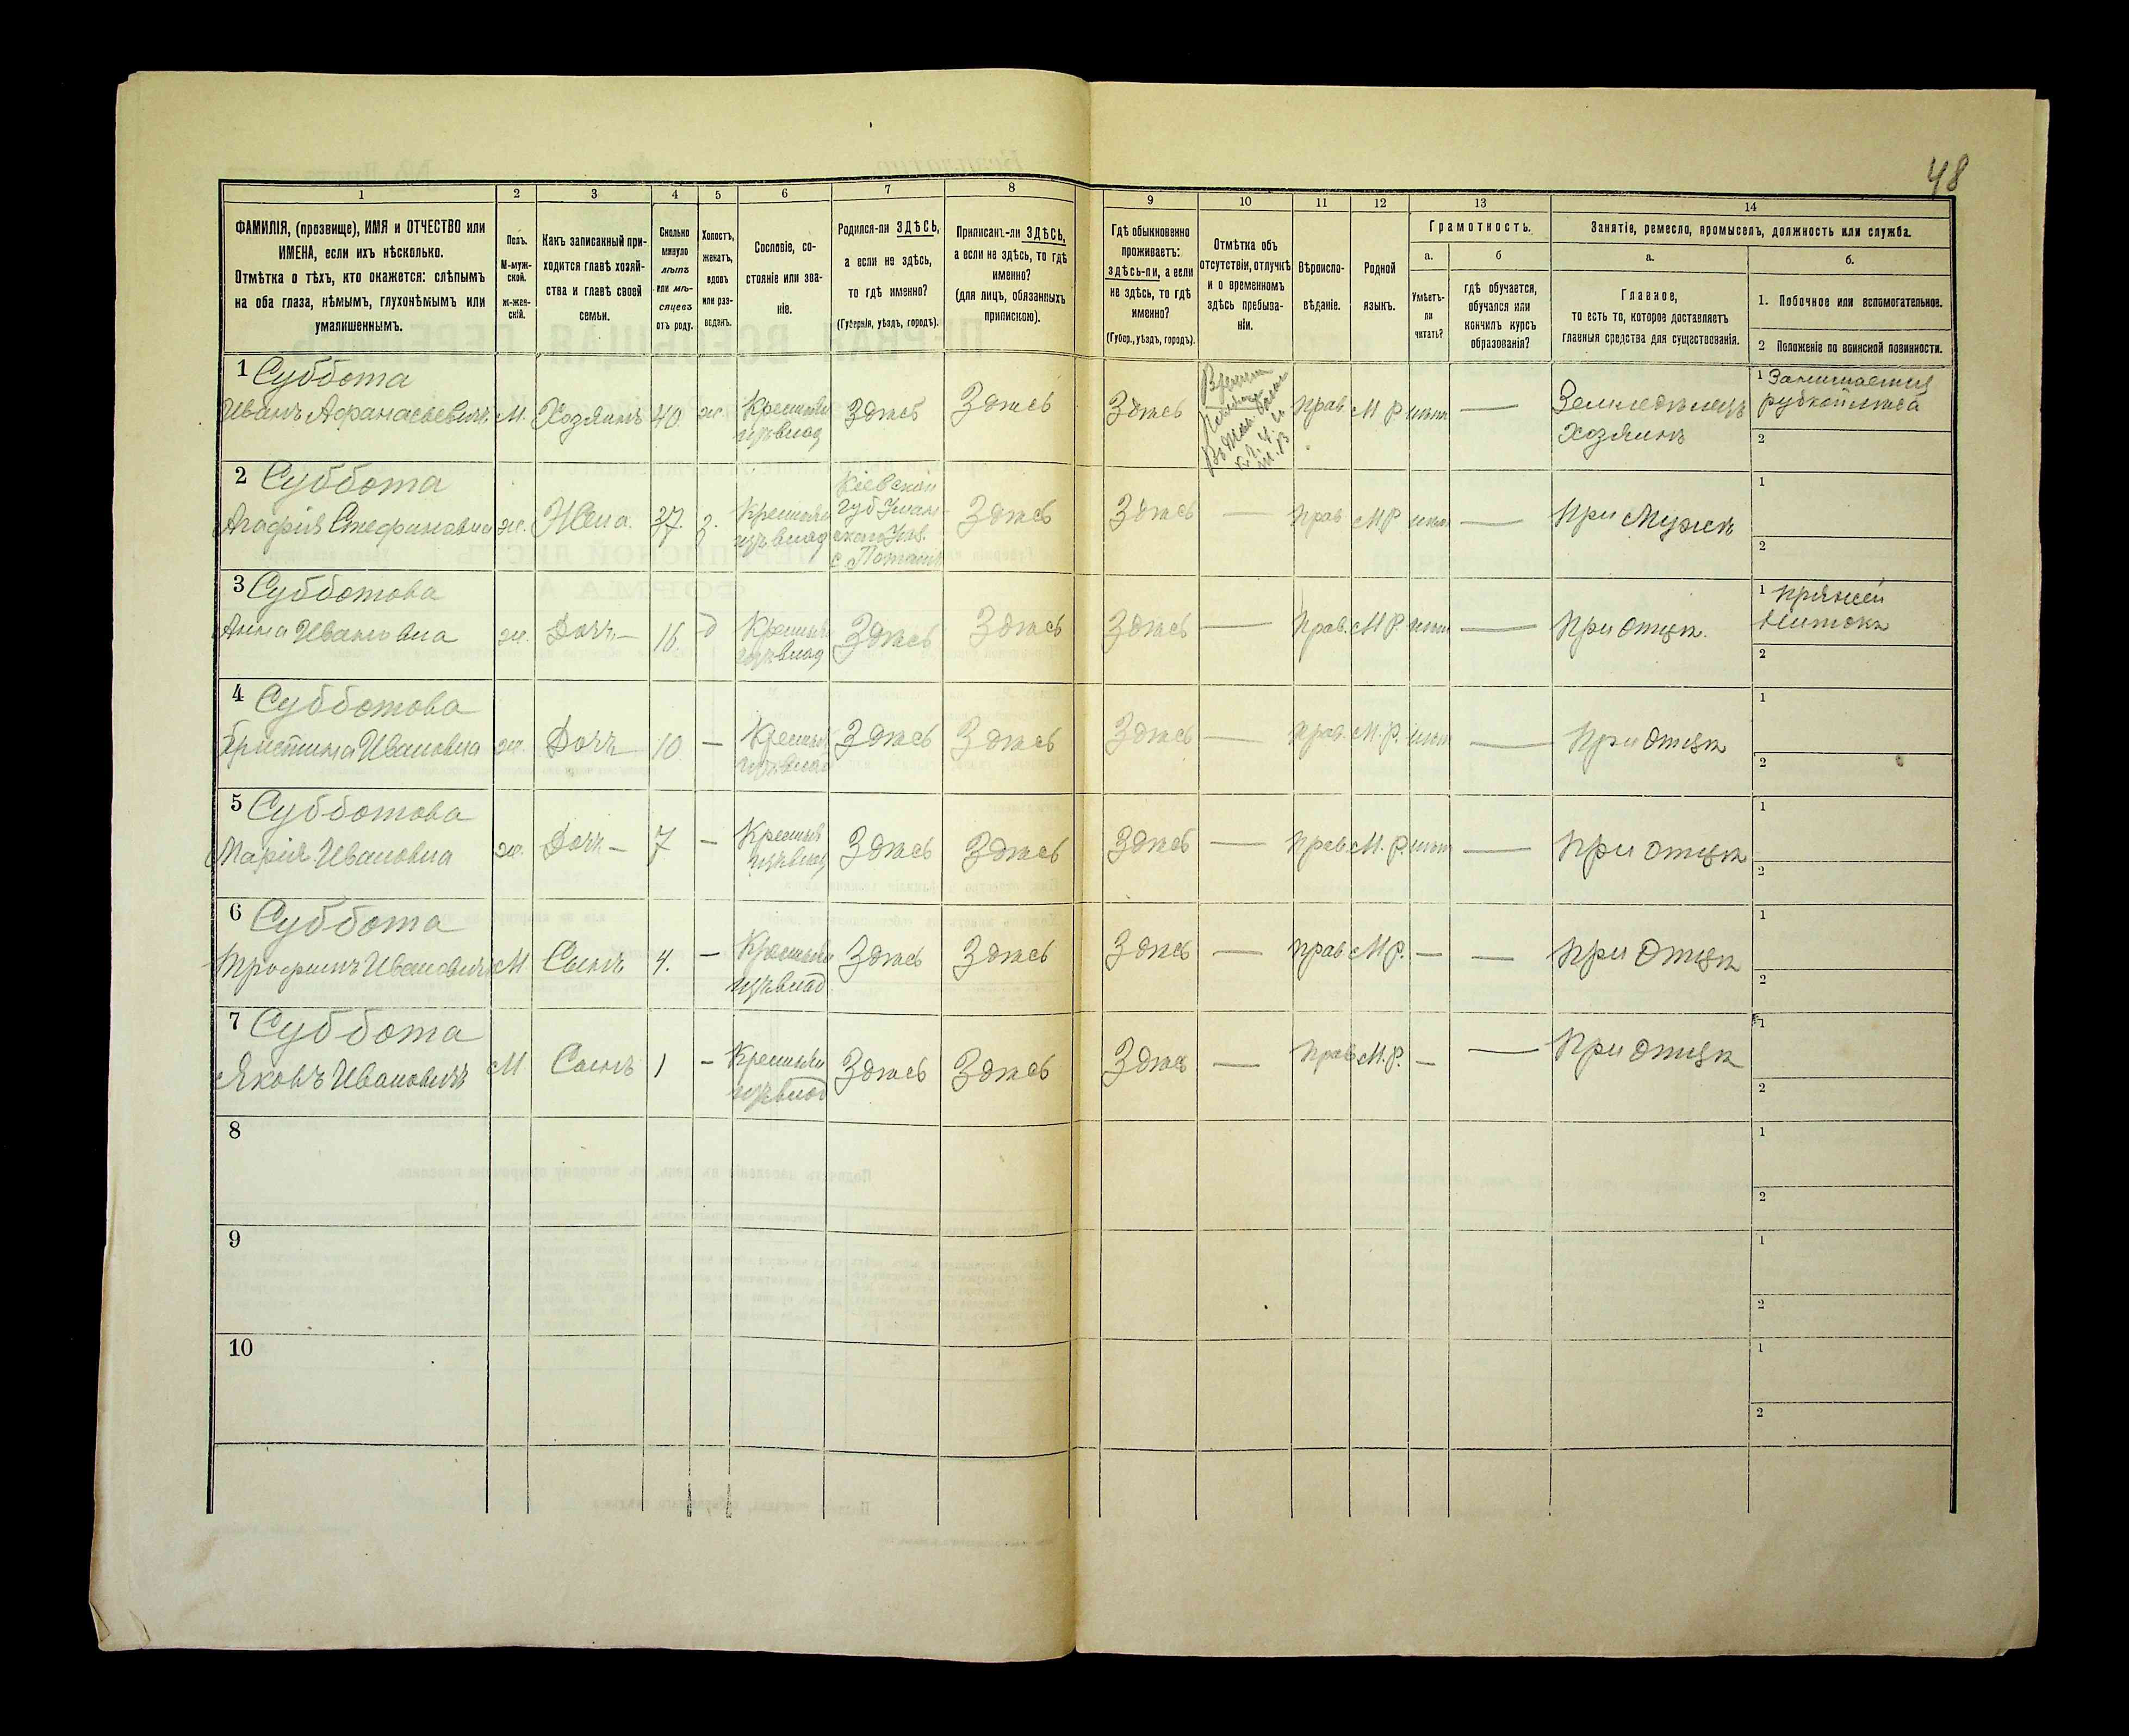 48
1 2 3 4 5 6 7 8 9 10 11 12 13 14
ФАМИЛІЯ, (прозвище), ИМЯ и ОТЧЕСТВО или
ИМЕНА, если ихъ нѣсколько.
Отмѣтка о тѣхъ, кто окажется: слѣпымъ
на оба глаза, нѣмымъ, глухонѣмымъ или
умалишеннымъ.
Полъ.
М-муж-
ской.
ж-жен-
скій.
Какъ записанный при-
ходится главѣ хозяй-
ства и главѣ своей
семьи.
Сколько
минуло
лѣтъ
или мѣ-
сяцевъ
отъ роду.
Холостъ,
женатъ,
вдовъ
или раз-
веденъ.
Сословіе, со-
стояніе или зва-
ніе.
Родился-ли ЗДѢСЬ,
а если не здѣсь,
то гдѣ именно?
(Губернія, уѣздъ, городъ).
Приписанъ-ли ЗДѢСЬ,
а если не здѣсь, то гдѣ
именно?
(для лицъ, обязанныхъ
припискою).
Гдѣ обыкновенно
проживаетъ:
здѣсь-ли, а если
не здѣсь, то гдѣ
именно?
(Губер., уѣздъ, городъ).
Отмѣтка объ
отсутствіи, отлучкѣ
и о временномъ
здѣсь пребыва-
ніи.
Вѣроиспо-
вѣданіе.
Родной
языкъ.
Грамотность.
а.
Умѣетъ-
ли
читать?
б
гдѣ обучается,
обучался или
кончилъ курсъ
образованія?
Занятіе, ремесло, промыселъ, должность или служба.
а.
Главное,
то есть то, которое доставляетъ
главныя средства для существованія.
б.
1. Побочное или вспомогательное.
2 Положеніе по воинской повинности.
1 Суббота
Иванъ Афанасьевичъ М. Хозяинъ 40 ж. Крестьян Здѣсь Здѣсь Здѣсь прав М Р нѣтъ — Земледѣлецъ
изъ влад
Хозяинъ
1 Занимается
рубкой лѣса
2
2 Суббота
Агафія Стефановна ж. Жена. 37. з. Крестьян
изъ влад
Кіевской
Губ Уман-
скаго Уѣз.
с Поташъ
Здѣсь Здѣсь — прав М Р нѣтъ — При Мужѣ
1
2
3 Субботова
Анна Ивановна ж. Дочь — 16. д Крестьян Здѣсь Здѣсь Здѣсь — прав. М Р. нѣтъ — При отцѣ.
изъ влад
1 Пряжей
Нитокъ
2
4 Субботова
Христина Ивановна ж. Дочь 10 — Крестьян Здѣсь Здѣсь Здѣсь — прав. М. Р. нѣтъ — При отцѣ
изъ влад
1
2
5 Субботова
Марія Ивановна ж. Дочь — 7 — Крестьян Здѣсь Здѣсь Здѣсь — прав. М. Р. нѣтъ — При отцѣ
изъ влад
1
2
6 Суббота
Трофимъ Ивановичъ М Сынъ 4. — Крестьян Здѣсь Здѣсь Здѣсь — прав М Р. — — При отцѣ
изъ влад
1
2
7 Суббота
Яковъ Ивановичъ М Сынъ 1 — Крестьян Здѣсь Здѣсь Здѣсь — прав М. Р. — — При отцѣ
изъ влад
1
2
8
1
2
9
1
2
10
1
2